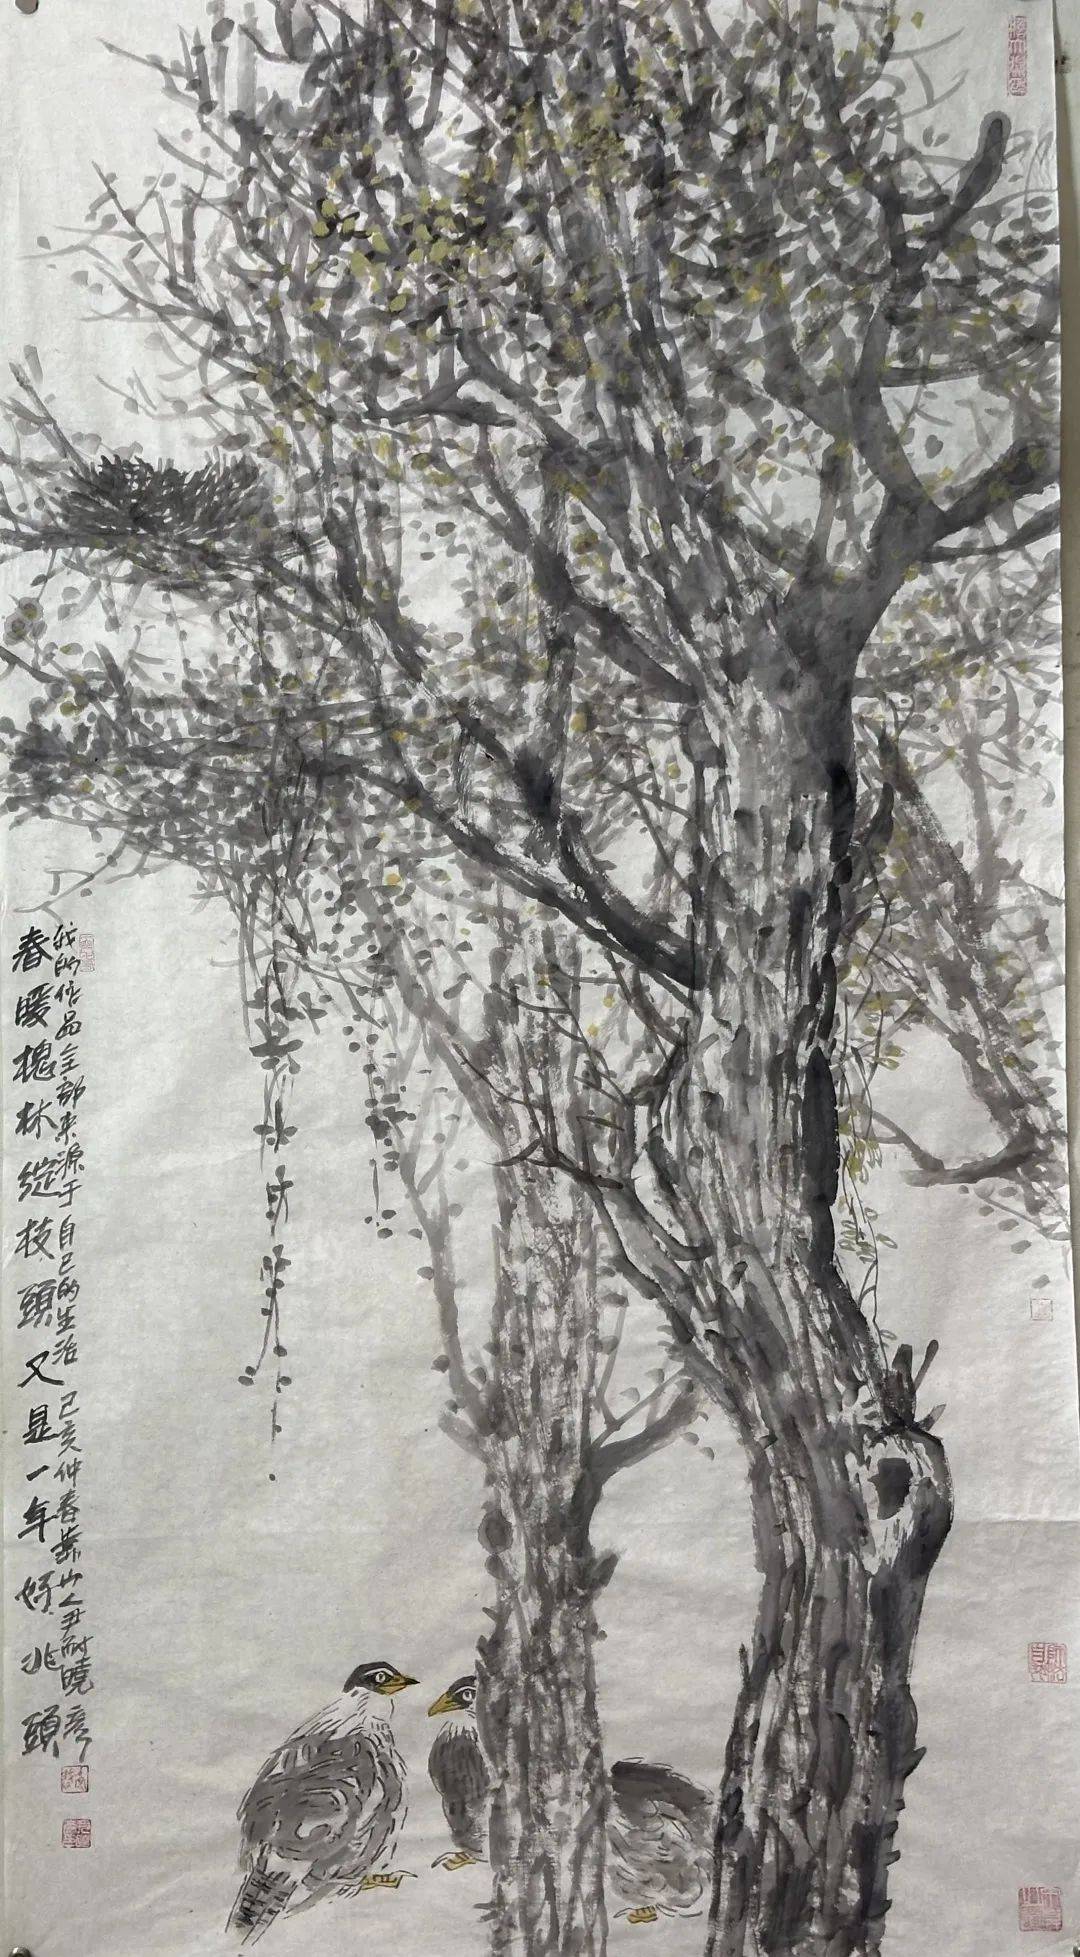 春暖槐林绽枝頭又是一年好兆頭
我的作品全部来源于自己的生活 己亥仲春山人尹耐曉